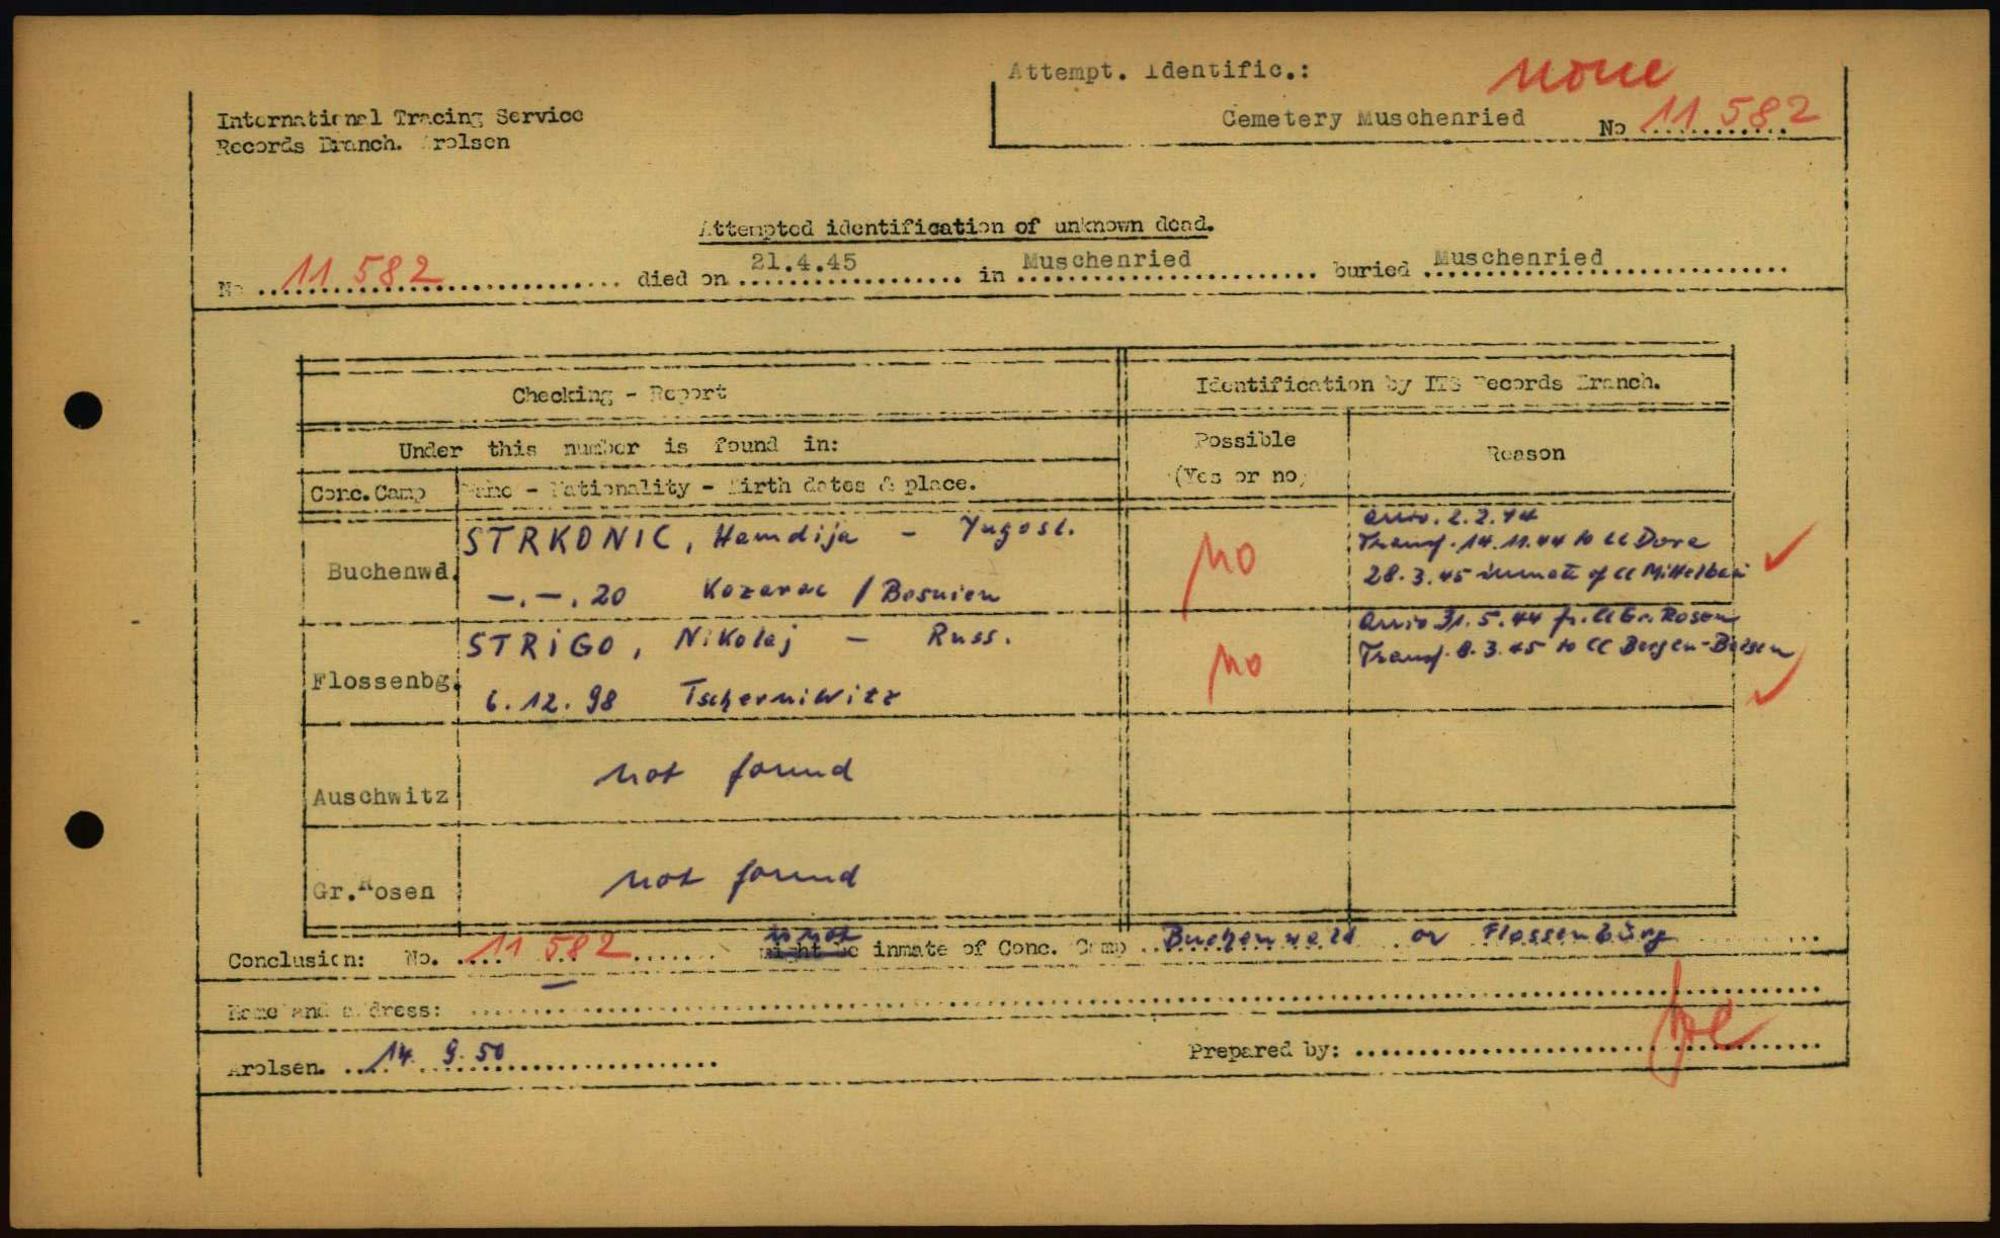 Attempt. Identific.: none
Cemetery Muschenried No 11 582
International Tracing Service
Records Branch. Arolsen
Attempted identification of unknown dead.
No 11 582 died on 21.4.45 in Muschenried buried Muschenried
Checking - Report
Identification by ITS Records Branch.
Under this number is found in:
Possible
(Yes or no)
Reason
Conc. Camp
Name - Nationality - Birth dates & place.
Buchenwd.
STRKONIC, Hamdija - Yugosl.
-.-.20 Kozarac / Bosnien
no
arriv. 2.2.44
Transf. 14.11.44 to CC Dora
28.3.45 inmate of CC Mittelbau
Flossenbg.
STRIGO, Nikolaj - Russ.
6.12.98 Tscherniwitz
no
arriv 31.5.44 fr. CC Gr. Rosen
Transf. 8.3.45 to CC Bergen-Belsen
Auschwitz
not found
Gr.Rosen
not found
Conclusion: No. 11 582 is not might be inmate of Conc. Camp Buchenwald or Flossenbürg
Name and address:
Arolsen. 14. 9. 50
Prepared by: